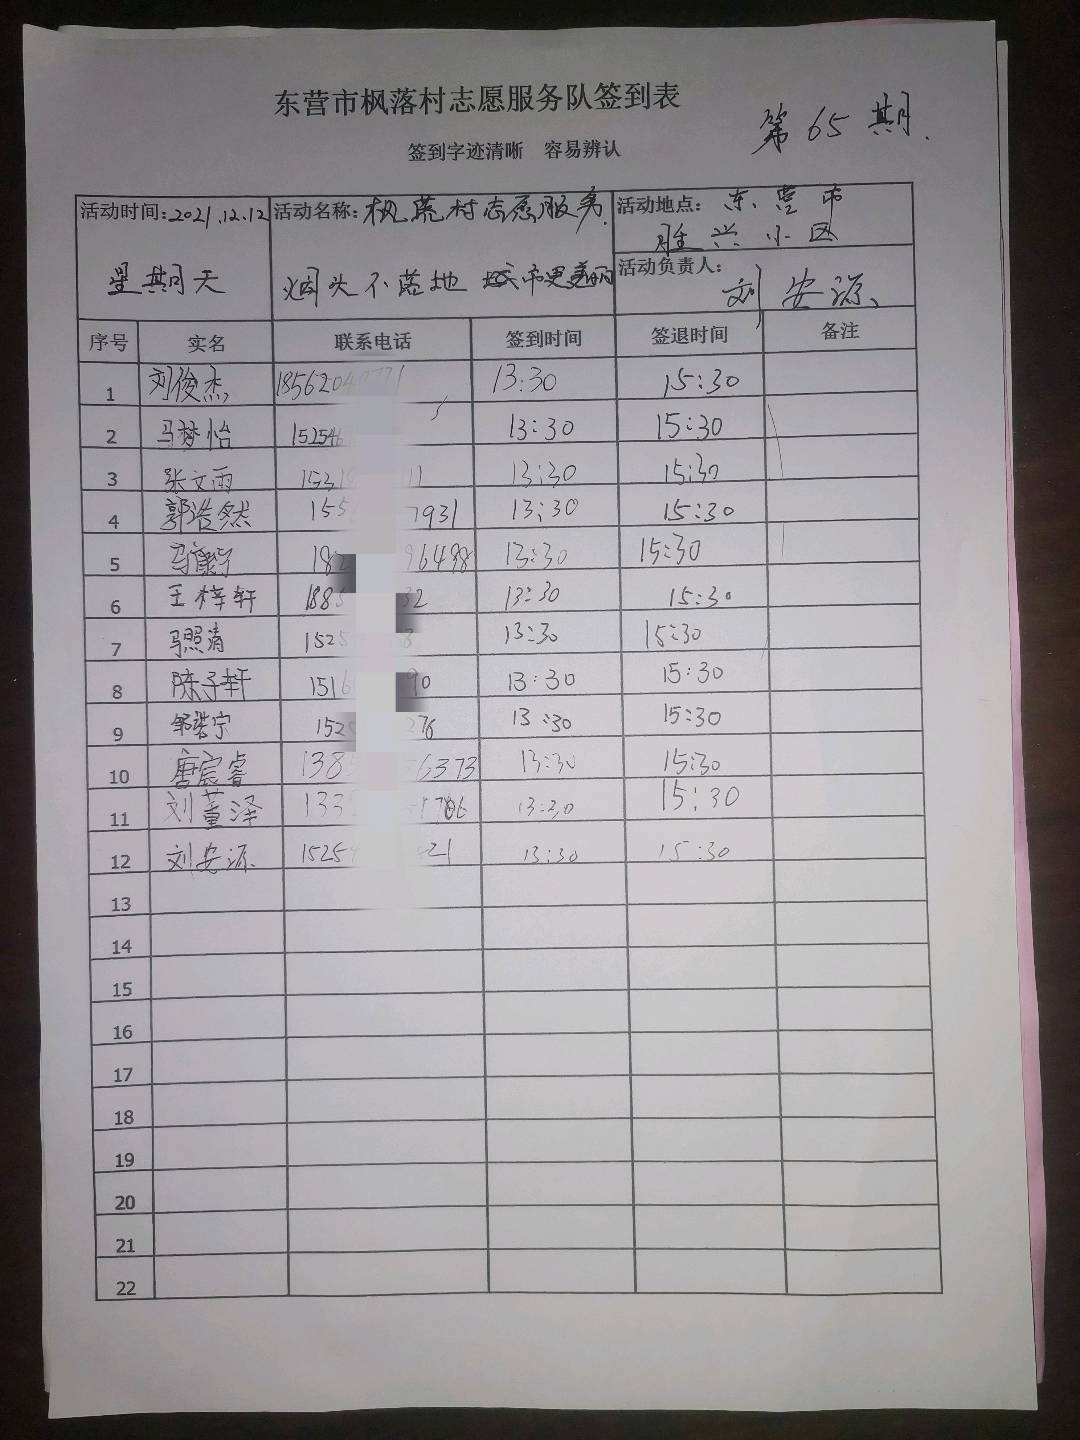 东营市枫落村志愿服务队签到表
第65期.
签到字迹清晰 容易辨认
活动时间:2021.12.12 星期天
活动名称:枫落村志愿服务 烟头不落地 城市更美丽
活动地点:东营市 胜兴小区
活动负责人:刘安源
序号 实名 联系电话 签到时间 签退时间 备注
1 刘俊杰 13:30 15:30
2 马梦怡 15254 13:30 15:30
3 张文雨 153 11 13:30 15:30
4 郭浩然 155 7931 13:30 15:30
5 18 96498 13:30 15:30
6 王梓轩 188 32 13:30 15:30
7 马照清 1525 13:30 15:30
8 陈子轩 151 90 13:30 15:30
9 邹 宁 152 276 13:30 15:30
10 唐宸睿 138 6373 13:30 15:30
11 刘董泽 133 13:30 15:30
12 刘安源 1525 21 13:30 15:30
13
14
15
16
17
18
19
20
21
22